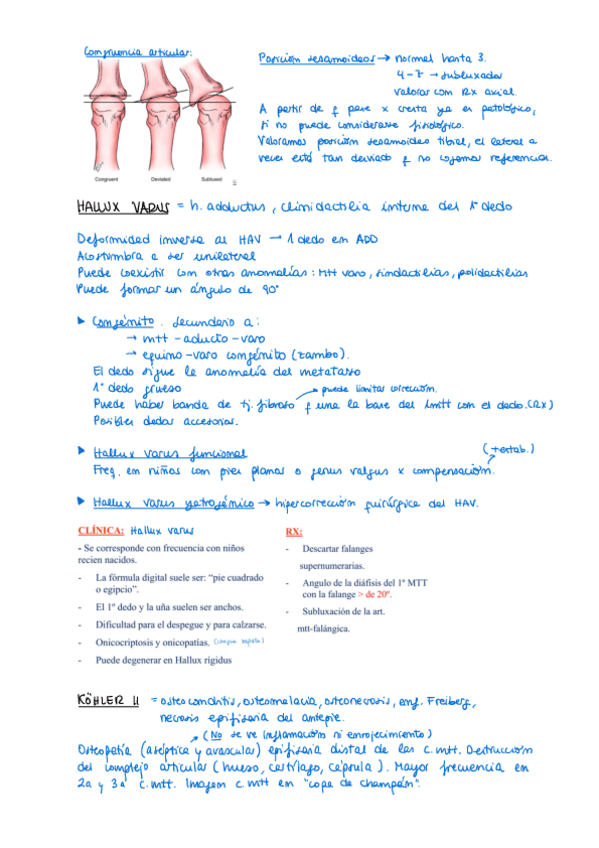 Congruencia articular:
Congruent
Deviated
Subluxed
Posición sesamoideos → normal hasta 3.
4-7 → subluxados
valorar con Rx axial.
A partir de q pase x cresta ya es patológico,
si no puede considerarse fisiológico.
Valoramos posición sesamoideo tibial, el lateral a
veces está tan desviado q no cogemos referencia.
HALLUX VARUS = h. adductus, clinidactilia interna del 1º dedo
Deformidad inversa al HAV → 1 dedo en ADD
Acostumbra a ser unilateral
Puede coexistir con otras anomalías: Mtt varo, sindactilias, polidactilias
Puede formar un ángulo de 90º
▸ Congénito. secundario a:
→ mtt-aducto-varo
→ equino-varo congénito (zambo).
El dedo sigue la anomalía del metatarso
1º dedo grueso
→ puede limitar corrección.
Puede haber banda de tj. fibroso q une la base del 1mtt con el dedo. (Rx)
Posibles dedos accesorios.
▸ Hallux varus funcional
(+estab.)
Freq. en niños con pies planos o genus valgus x compensación.
▸ Hallux varus yatrogénico → hipercorrección quirúrgica del HAV.
CLÍNICA: Hallux varus
- Se corresponde con frecuencia con niños
recien nacidos.
- La fórmula digital suele ser: “pie cuadrado
o egipcio”.
- El 1º dedo y la uña suelen ser anchos.
- Dificultad para el despegue y para calzarse.
- Onicocriptosis y onicopatías. (choque zapato)
- Puede degenerar en Hallux rígidus
RX:
- Descartar falanges
supernumerarias.
- Angulo de la diáfisis del 1º MTT
con la falange > de 20º.
- Subluxación de la art.
mtt-falángica.
KÖHLER II = osteocondritis, osteomalacia, osteonecrosis, enf. Freiberg,
necrosis epifisaria del antepie.
→ (No se ve inflamación ni enrojecimiento)
Osteopatía (aséptica y avascular) epifisaria distal de las c.mtt. Destrucción
del complejo articular (hueso, cartílago, cápsula). Mayor frecuencia en
2a y 3a c.mtt. Imagen c.mtt en "copa de champán".